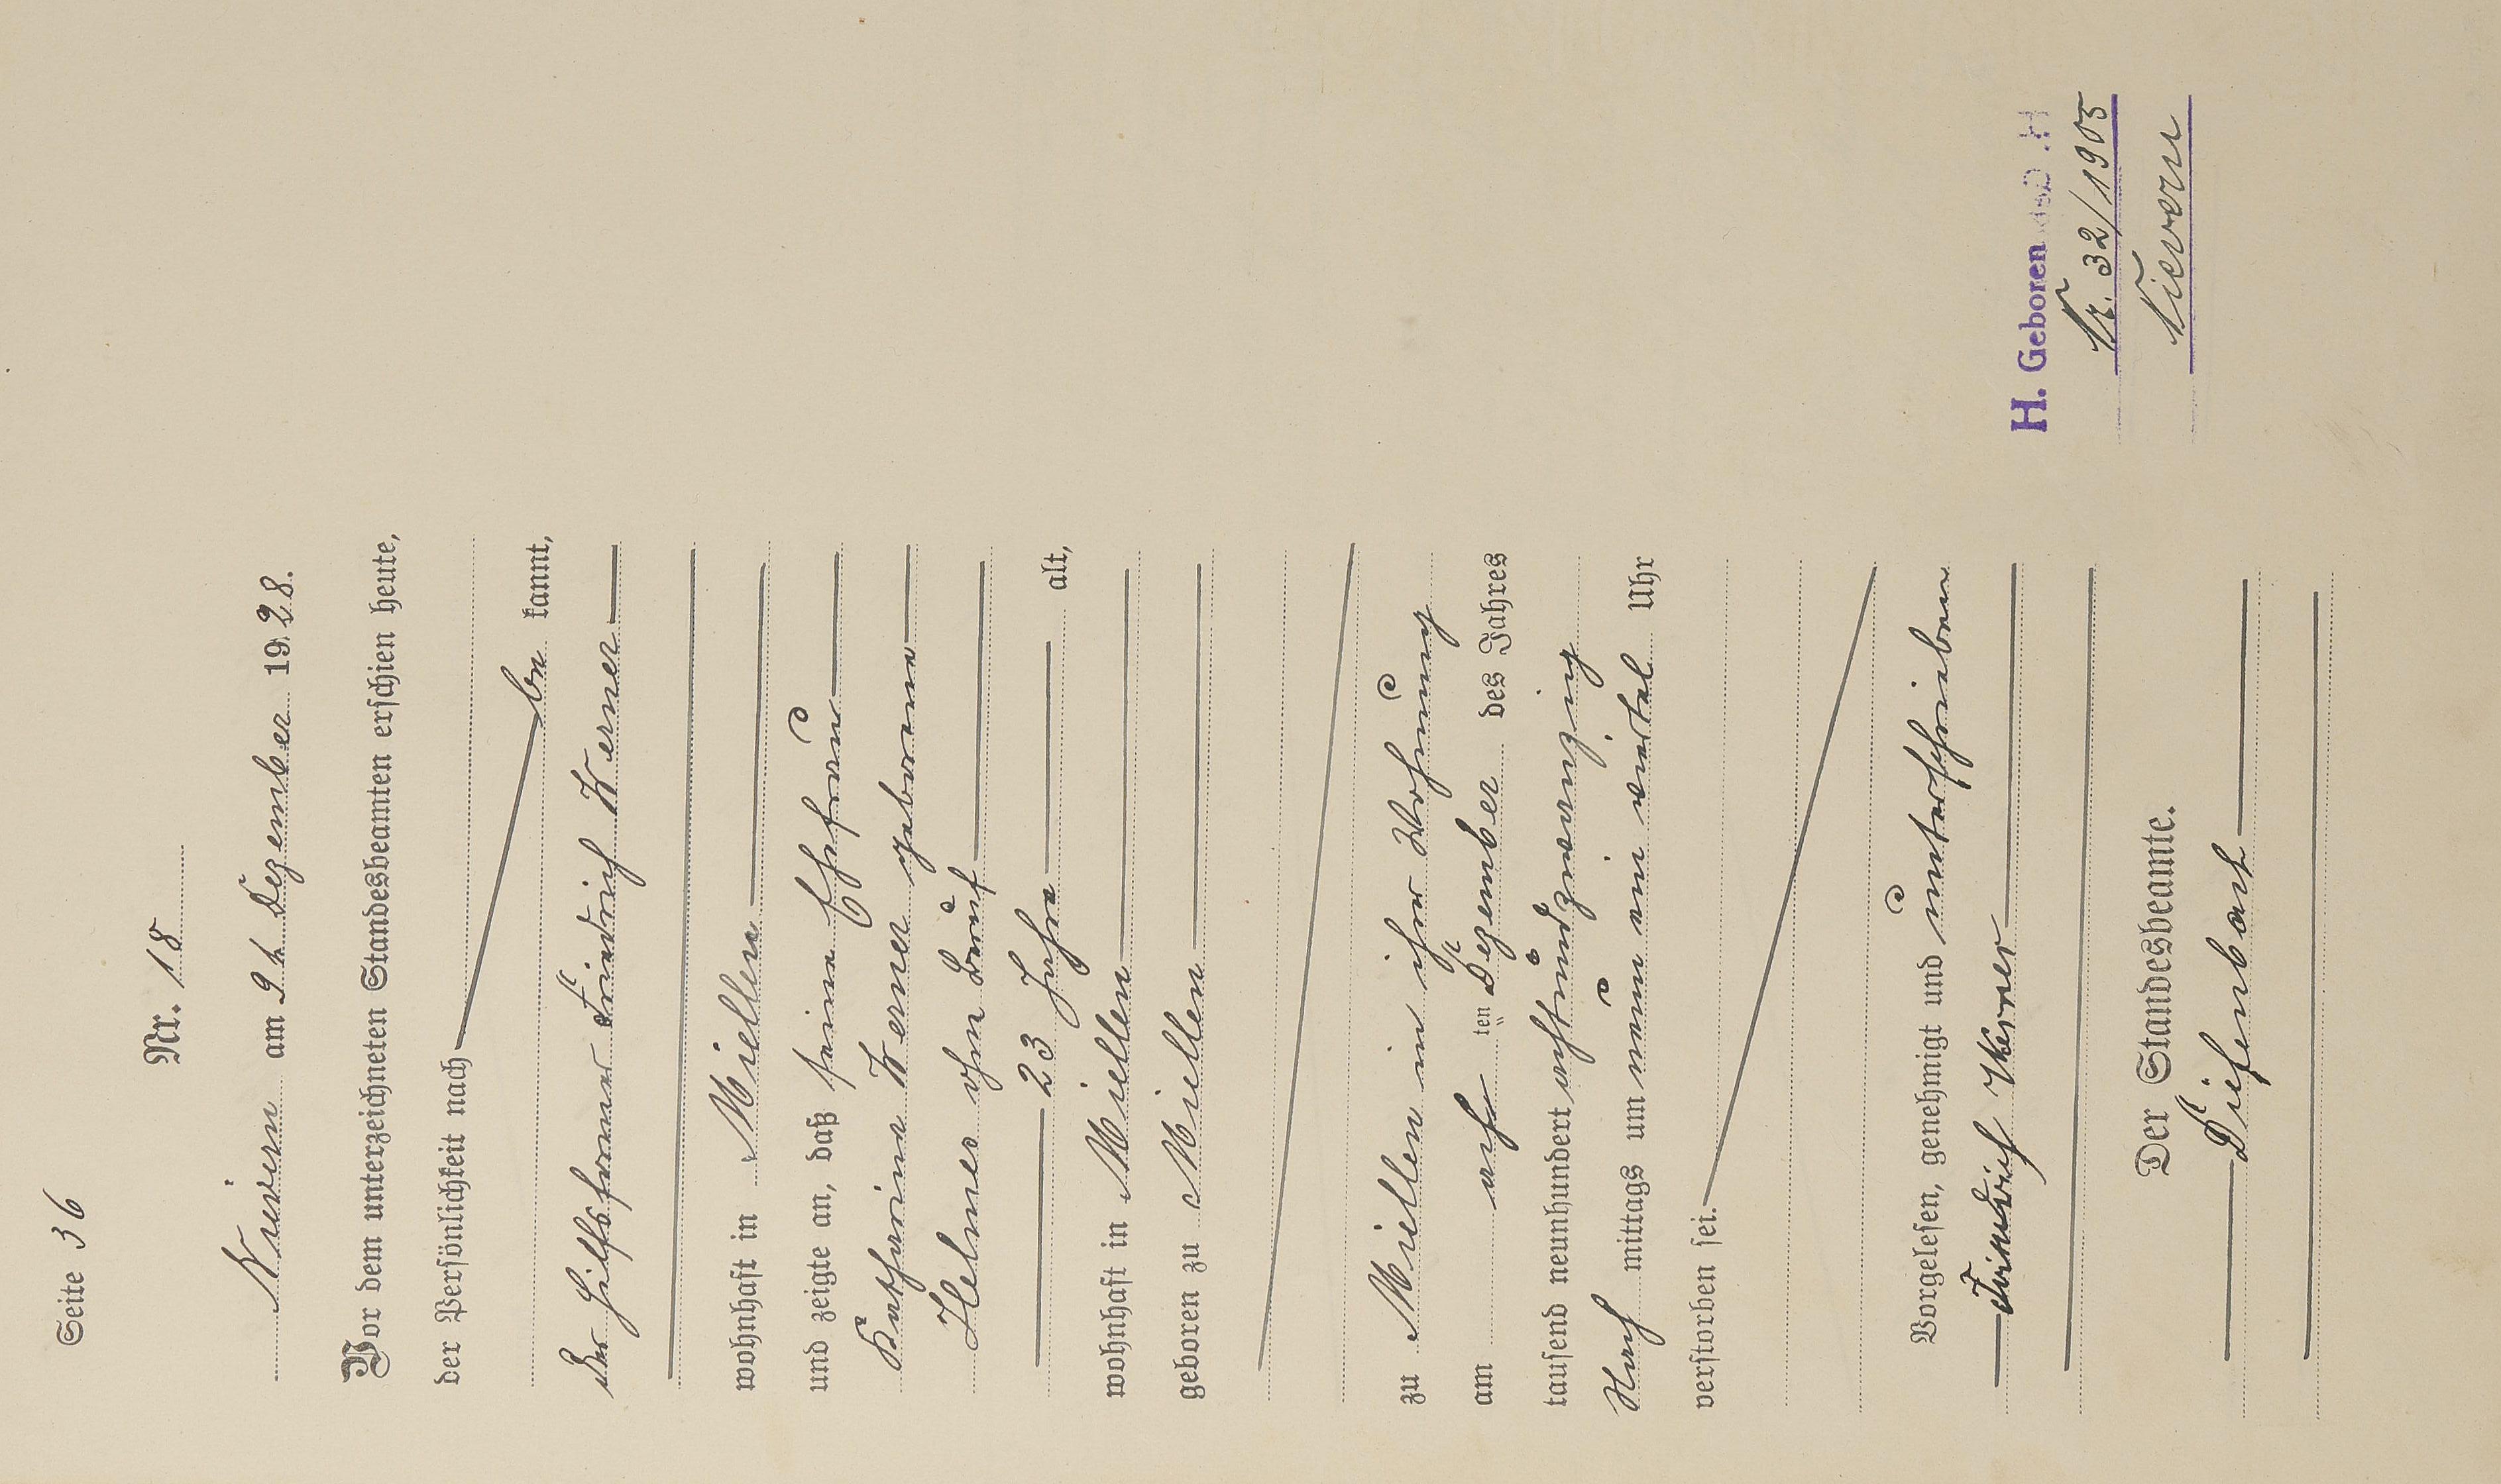 Seite 36
Nr. 18
Nievern am 9t Dezember 1928.
Vor dem unterzeichneten Standesbeamten erschien heute,
der Persönlichkeit nach
be kannt,
der Hilfsformer Friedrich Werner
wohnhaft in Miellen
und zeigte an, daß seine Ehefrau
Katharina Werner geborene
Helmes ohne Beruf
23 Jahre alt,
wohnhaft in Miellen
geboren zu Miellen
zu Miellen in ihrer Wohnung
am acht ten Dezember des Jahres
tausend neunhundert achtundzwanzig
Nach mittags um neun ein viertel Uhr
verstorben sei.
Vorgelesen, genehmigt und unterschrieben
Friedrich Werner
Der Standesbeamte.
Diefenbach
H. Geboren
Nr. 32/1905
Nievern